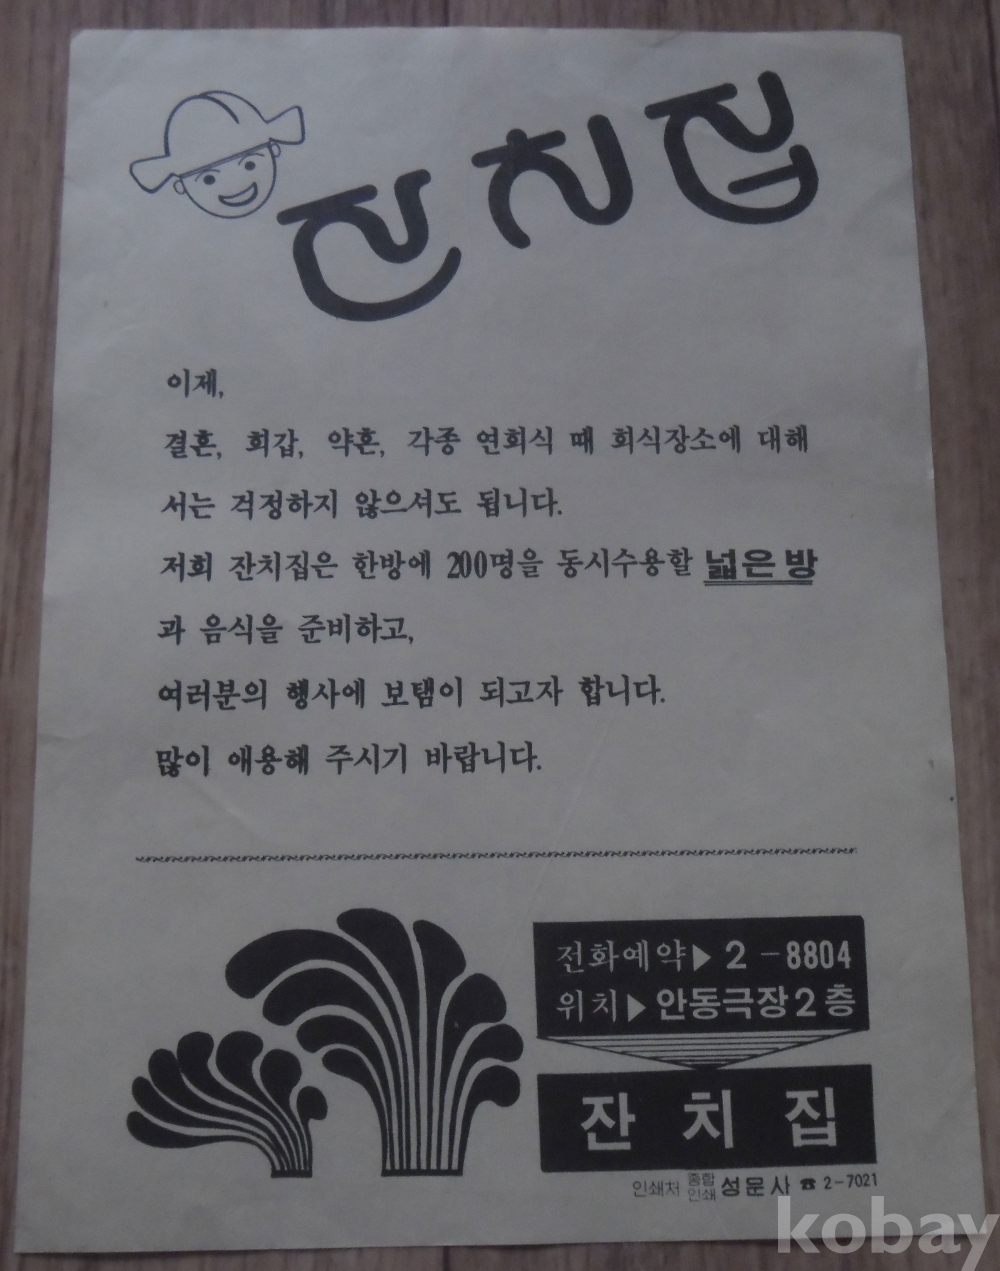 잔치집
이제,
결혼, 회갑, 약혼, 각종 연회식 때 회식장소에 대해
서는 걱정하지 않으셔도 됩니다.
저희 잔치집은 한방에 200명을 동시수용할 넓은방
과 음식을 준비하고,
여러분의 행사에 보탬이 되고자 합니다.
많이 애용해 주시기 바랍니다.
전화예약▶ 2-8804
위치▶ 안동극장2층
잔치집
인쇄처 종합인쇄 성문사 ☎ 2-7021
kobay